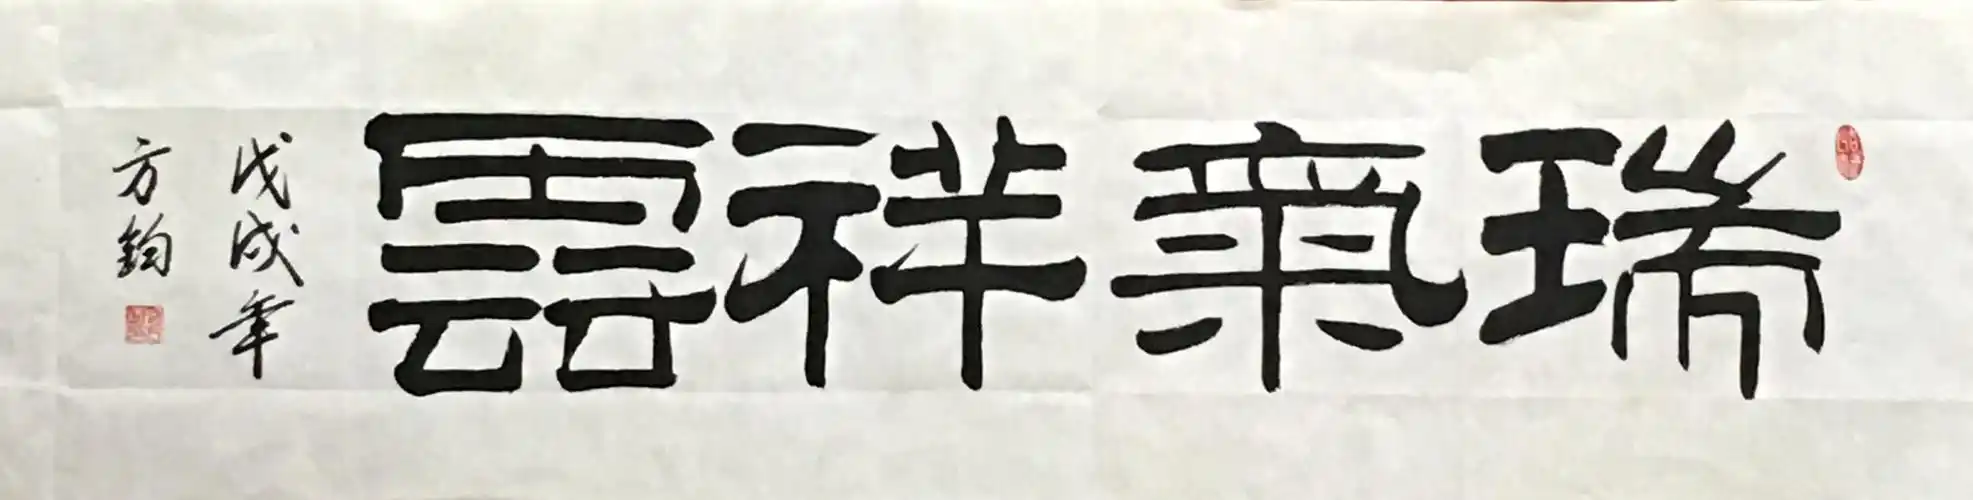 瑞氣祥雲
戊戌年
方鈞